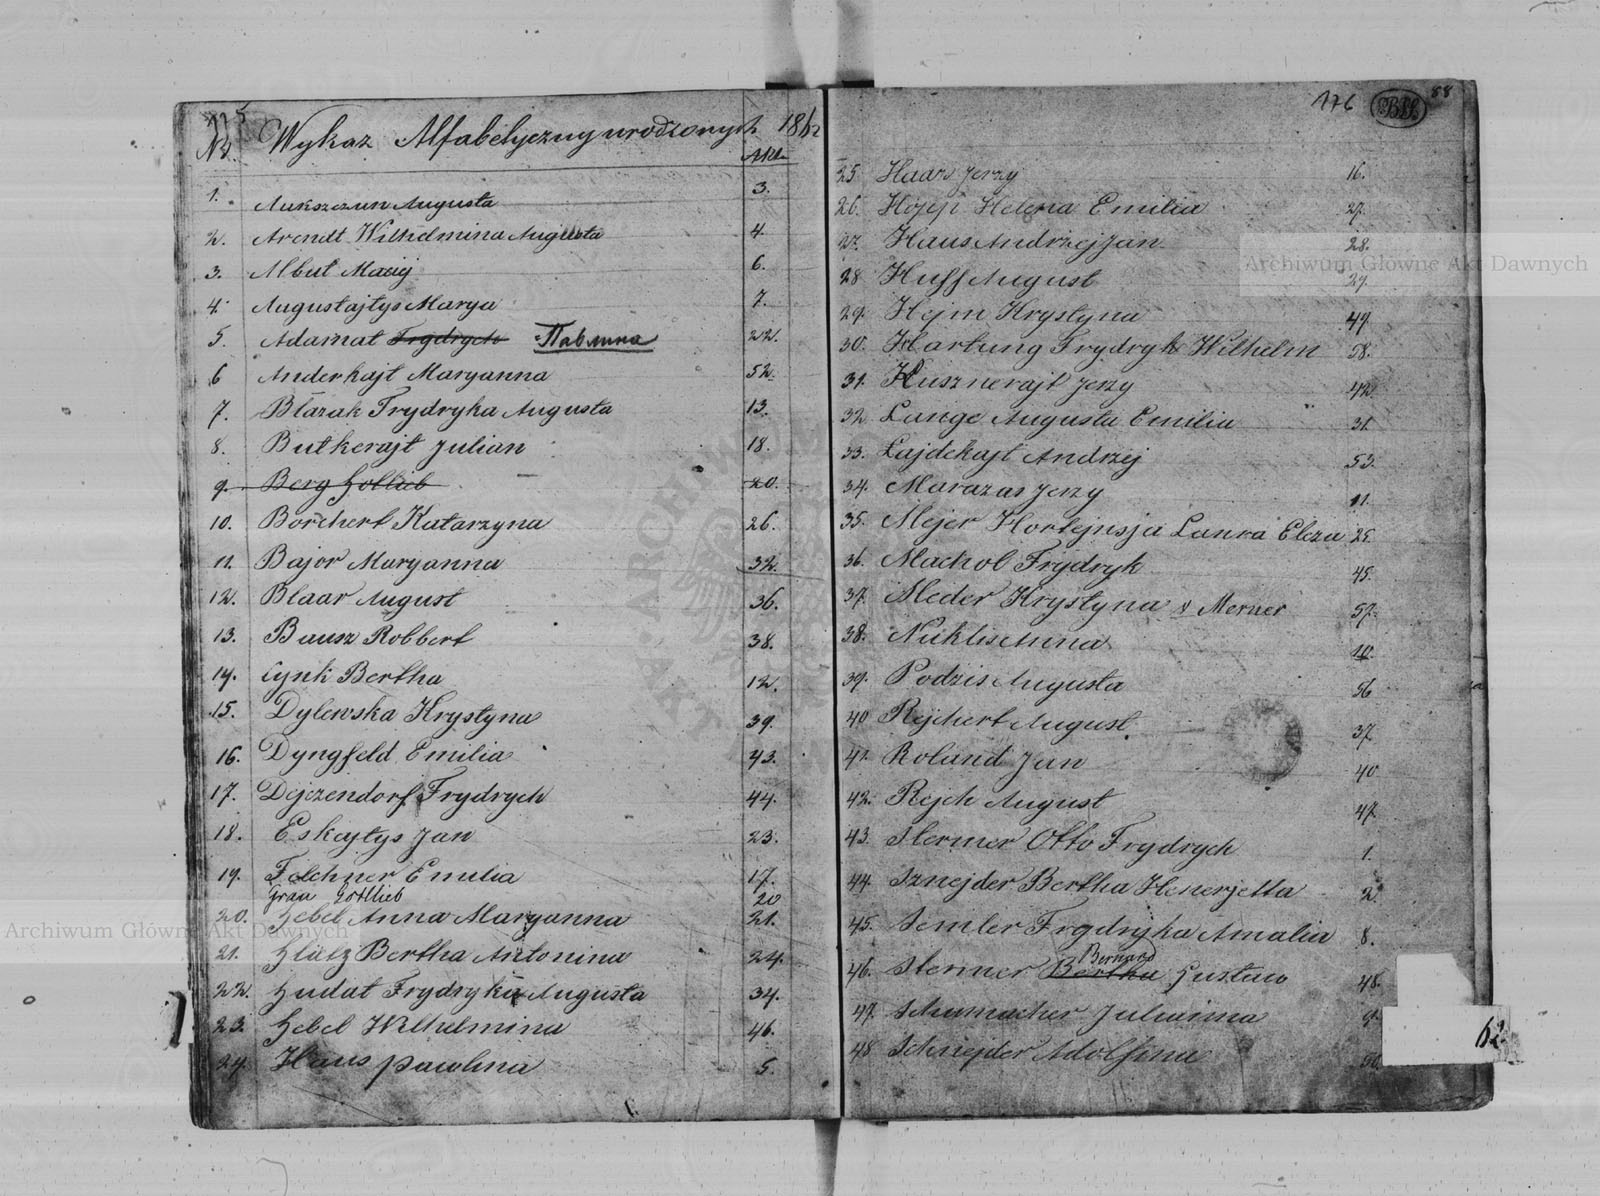 Nr. Wykaz Alfabetyczny urodzonych 1862
Akta
1. Aukszczun Augusta 3.
2. Arendt Wilhelmina Augusta 4.
3. Albut Maciej 6.
4. Augustajtys Marya 7.
5. Adamat Frydrych Павлина 22.
6 Anderkajt Maryanna 52.
7. Błazak Frydryka Augusta 13.
8. Butkerajt Julian 18.
9. Berg Gottlieb 20.
10. Borchert Katarzyna 26.
11. Bajor Maryanna 32.
12. Blaar August 36.
13. Bausz Robbert 38.
14. Cynk Bertha 12.
15. Dylewska Krystyna 39.
16. Dyngfeld Emilia 43.
17. Dejczendorf Frydrych 44.
18. Eskejtys Jan 23.
19. Felchner Emilia 17.
Grau Gottlieb 20
20. Gebel Anna Maryanna 21.
21. Glatz Bertha Antonina 24.
22. Gudat Frydryka Augusta 34.
23. Gebel Wilhelmina 46.
24. Haus Pawlina 5.
176 88
25 Haars Jerzy 16.
26. Hojep Helena Emilia 27.
27. Haus Andrzej Jan 28.
28 Huff August 29.
29. Hejm Krystyna 49.
30. Hartung Frydryk Wilhelm 58.
31. Kusznerajt Jerzy 42.
32 Lange Augusta Emilia 31.
33. Lajdekajt Andrzej 53.
34. Marazas Jerzy 11.
35. Mejer Hortejnsja Laura Eliza 25.
36. Machol Frydryk 45.
37. Meder Krystyna v Merner 57.
38. Niklis Anna 10.
39. Podzis Augusta 56
40 Rejchert August. 37.
41. Roland Jan 40
42. Rejch August 47.
43. Sterner Otto Frydrych 1.
44. Sznejder Bertha Henerjetta 2.
45. Semler Frydryka Amalia 8.
Bernard
46. Sterner Bertha Gustaw 48.
47. Schumacher Julianna 9.
48 Schnejder Adolfina 50.
62.
Archiwum Główne Akt Dawnych
Archiwum Główne Akt Dawnych